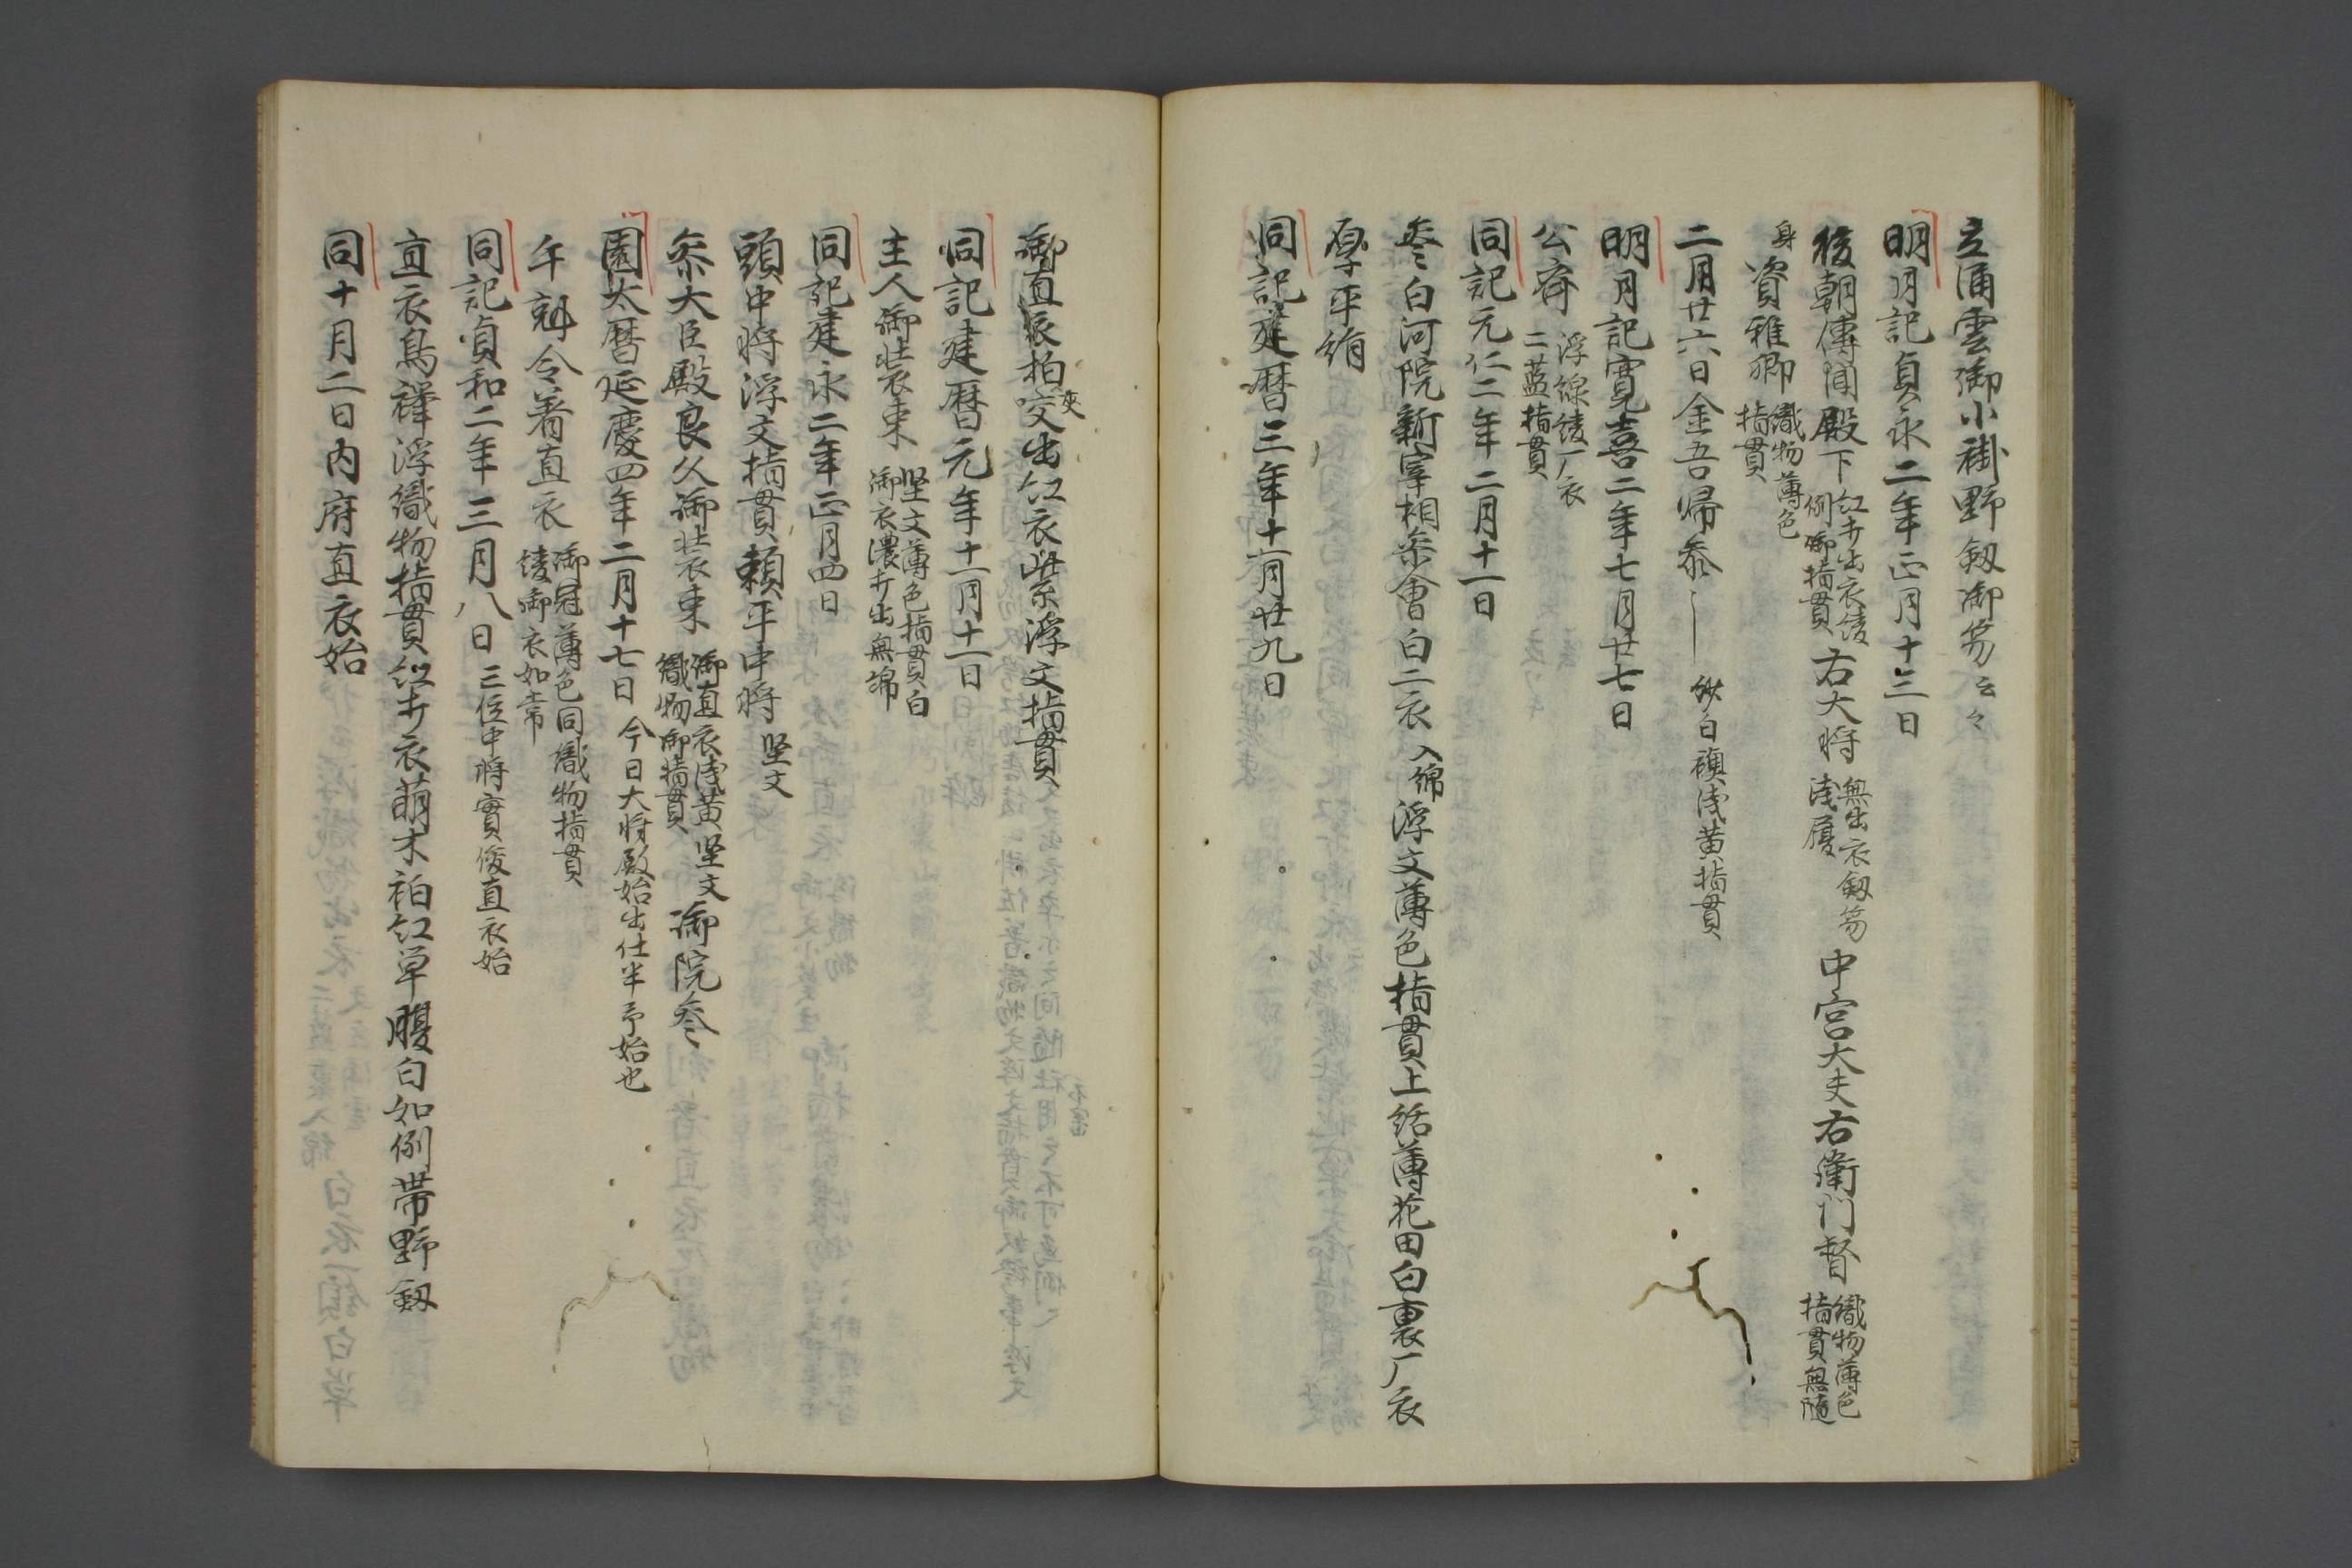 立涌雲御小褂野釼御笏云々
明月記貞永二年正月十三日
後朝傳聞殿下紅打出衣綾例御指貫右大将無出衣釼笏浅履中宮大夫右衛門督織物薄色指貫無随
身資雅卿織物薄色指貫
二月廿六日金吾帰参 白襖浅黄指貫
明月記寛喜二年七月廿七日
公斉浮線綾厂衣二藍指貫
同記元仁二年二月十一日
参白河院新宰相参會白二衣入綿浮文薄色指貫上括薄花田白裏厂衣
厚平絹
同記建暦三年十一月廿九日
御直衣柏夾出紅衣紫浮文指貫
同記建暦元年十一月十一日
主人御装束堅文薄色指貫白御衣濃打出無綿
同記建永二年正月四日
頭中将浮文指貫頼平中将堅文
参大臣殿良久御装束御直衣浅黄堅文織物御指貫御院参
園太暦延慶四年二月十七日今日大将殿始出仕半予始也
午剋令着直衣御冠薄色同織物指貫綾御衣如常
同記貞和二年三月八日三位中将實俊直衣始
直衣鳥襷浮織物指貫紅打衣萌木袙紅単腹白如例帯野釼
同十月二日内府直衣始